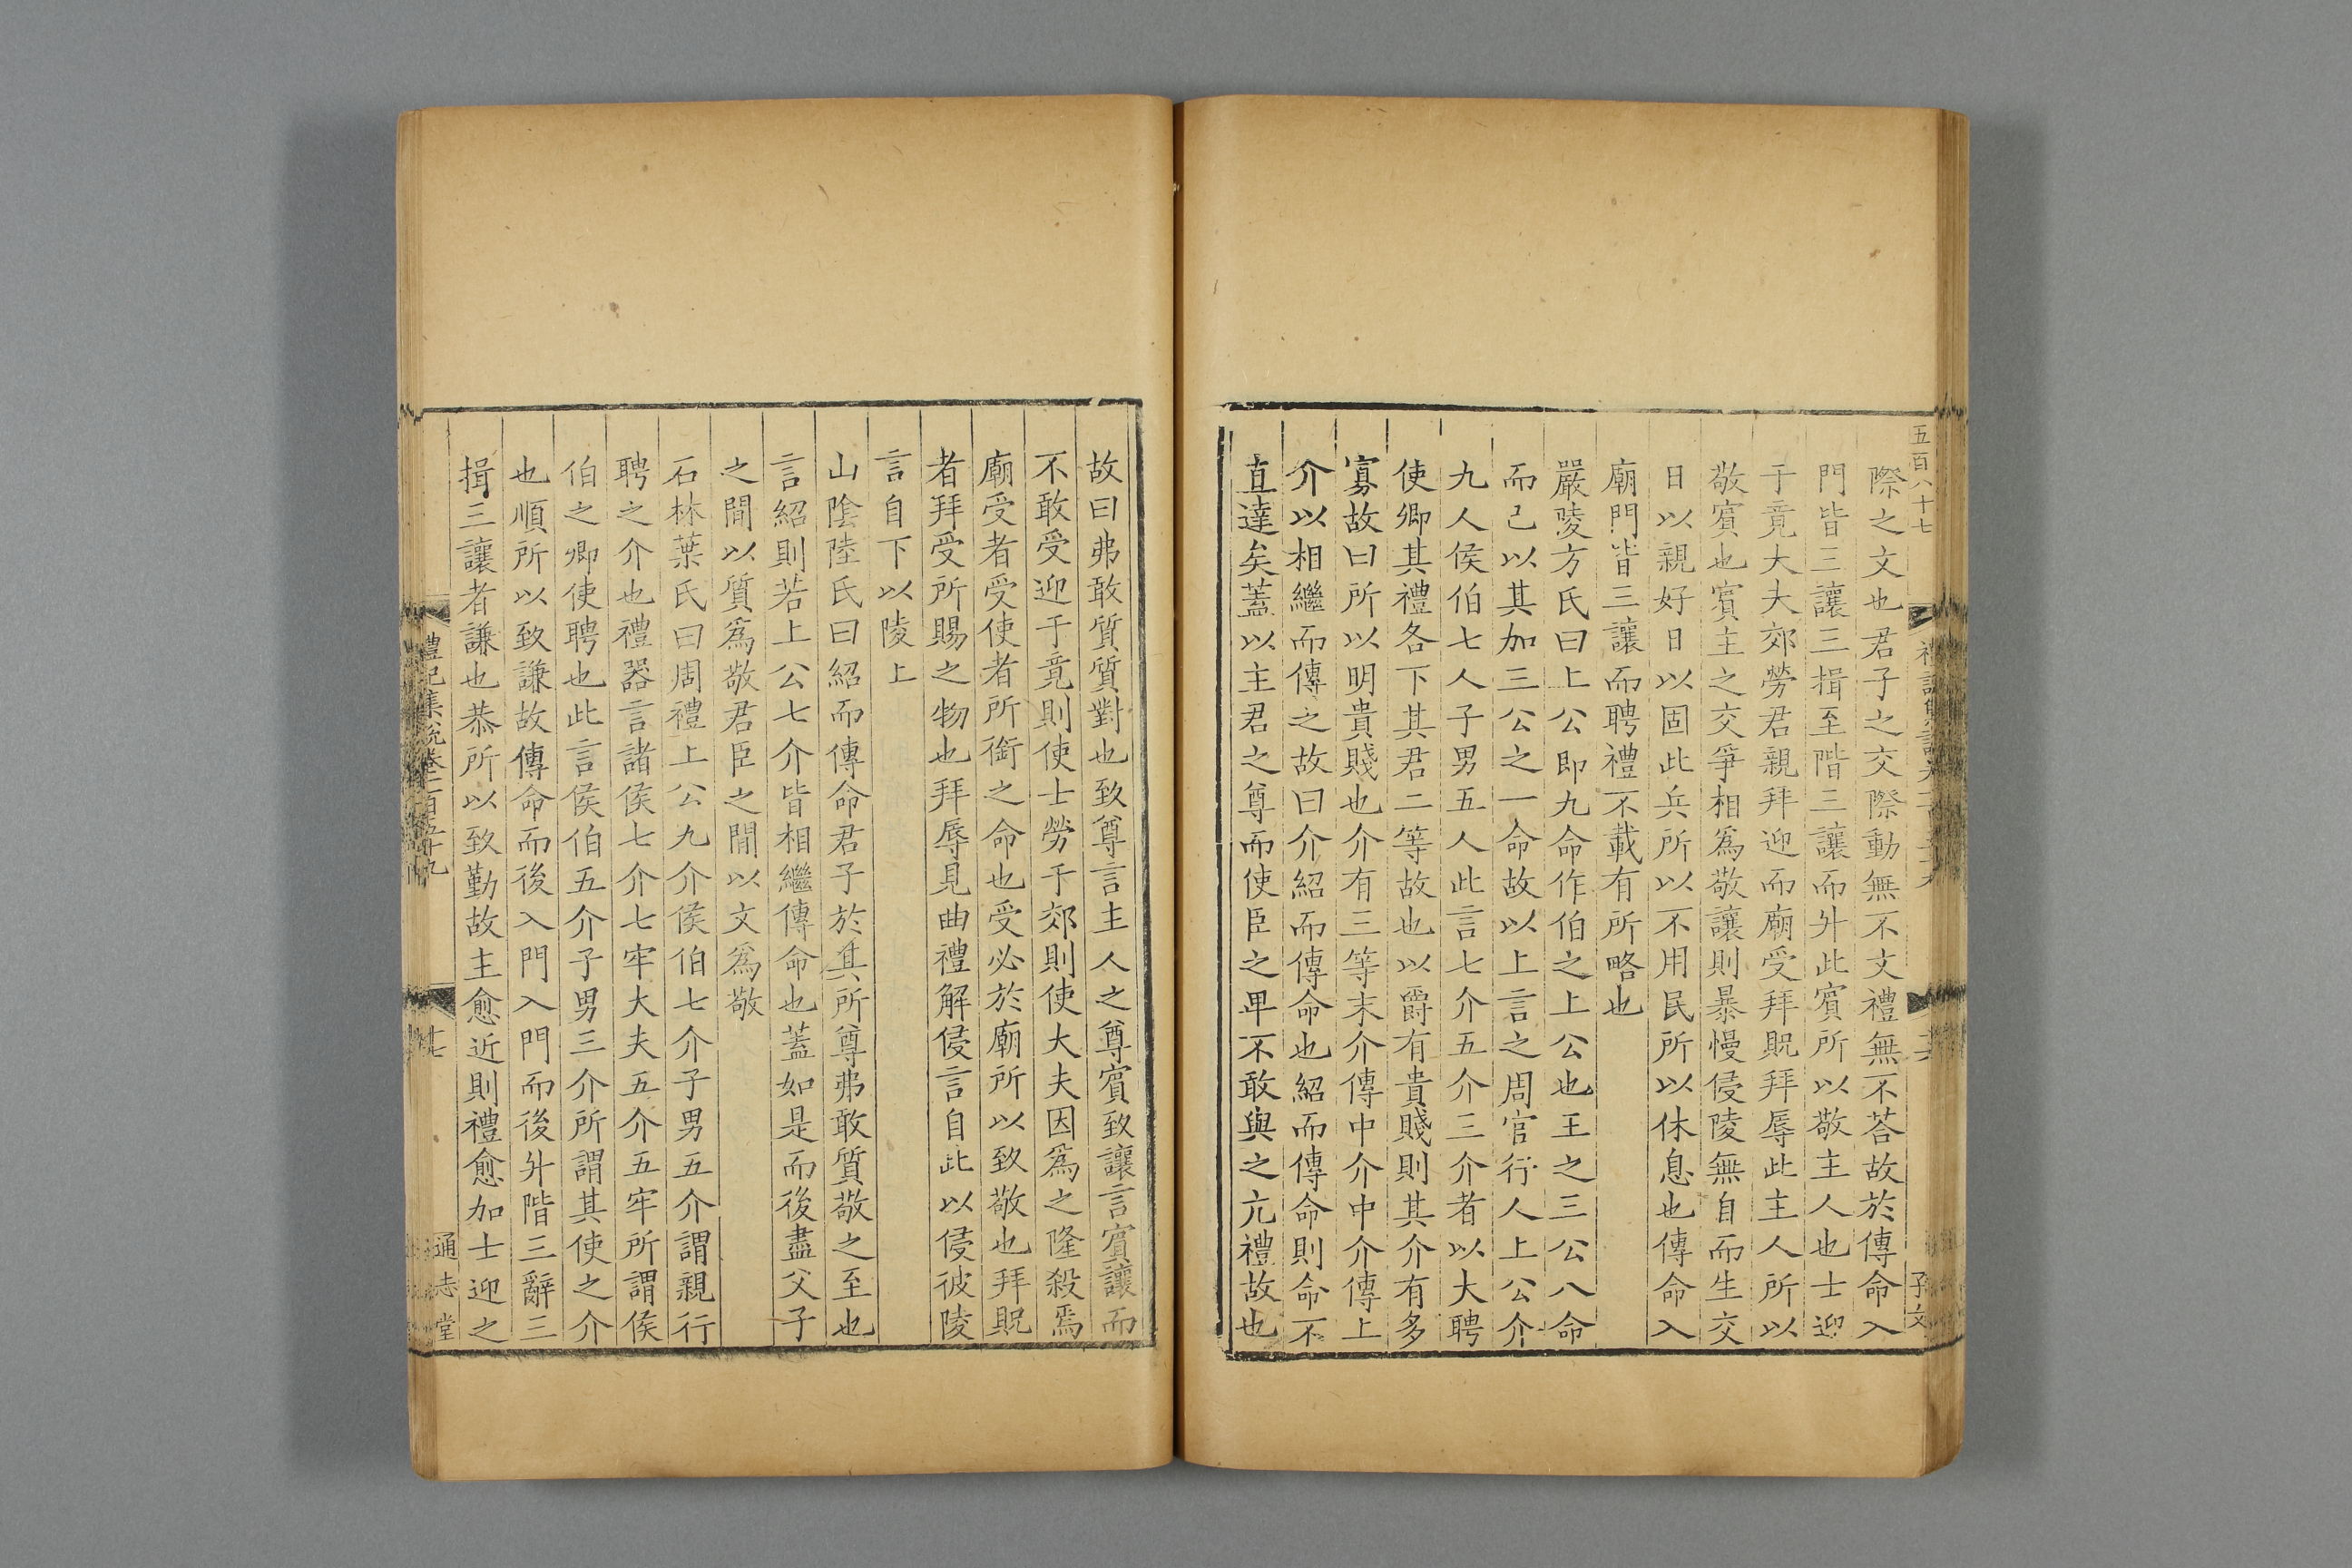 五百八十七
際之文也君子之交際動無不文禮無不荅故於傳命入
門皆三讓三揖至階三讓而升此賓所以敬主人也士迎
于竟大夫郊勞君親拜迎而廟受拜貺拜辱此主人所以
敬賓也賓主之交爭相爲敬讓則暴慢侵陵無自而生交
日以親好日以固此兵所以不用民所以休息也傳命入
廟門皆三讓而聘禮不載有所略也
嚴陵方氏曰上公即九命作伯之上公也王之三公八命
而已以其加三公之一命故以上言之周官行人上公介
九人侯伯七人子男五人此言七介五介三介者以大聘
使卿其禮各下其君二等故也以爵有貴賤則其介有多
寡故曰所以明貴賤也介有三等末介傳中介中介傳上
介以相繼而傳之故曰介紹而傳命也紹而傳命則命不
直達矣蓋以主君之尊而使臣之卑不敢與之亢禮故也
子文
故曰弗敢質質對也致尊言主人之尊賓致讓言賓讓而
不敢受迎于竟則使士勞于郊則使大夫因爲之隆殺焉
廟受者受使者所銜之命也受必於廟所以致敬也拜貺
者拜受所賜之物也拜辱見曲禮解侵言自此以侵彼陵
言自下以陵上
山陰陸氏曰紹而傳命君子於其所尊弗敢質敬之至也
言紹則若上公七介皆相繼傳命也蓋如是而後盡父子
之閒以質爲敬君臣之閒以文爲敬
石林葉氏曰周禮上公九介侯伯七介子男五介謂親行
聘之介也禮器言諸侯七介七牢大夫五介五牢所謂侯
伯之卿使聘也此言侯伯五介子男三介所謂其使之介
也順所以致謙故傳命而後入門入門而後升階三辭三
揖三讓者謙也恭所以致勤故主愈近則禮愈加士迎之
禮記集説卷一百五十九
十七
通志堂